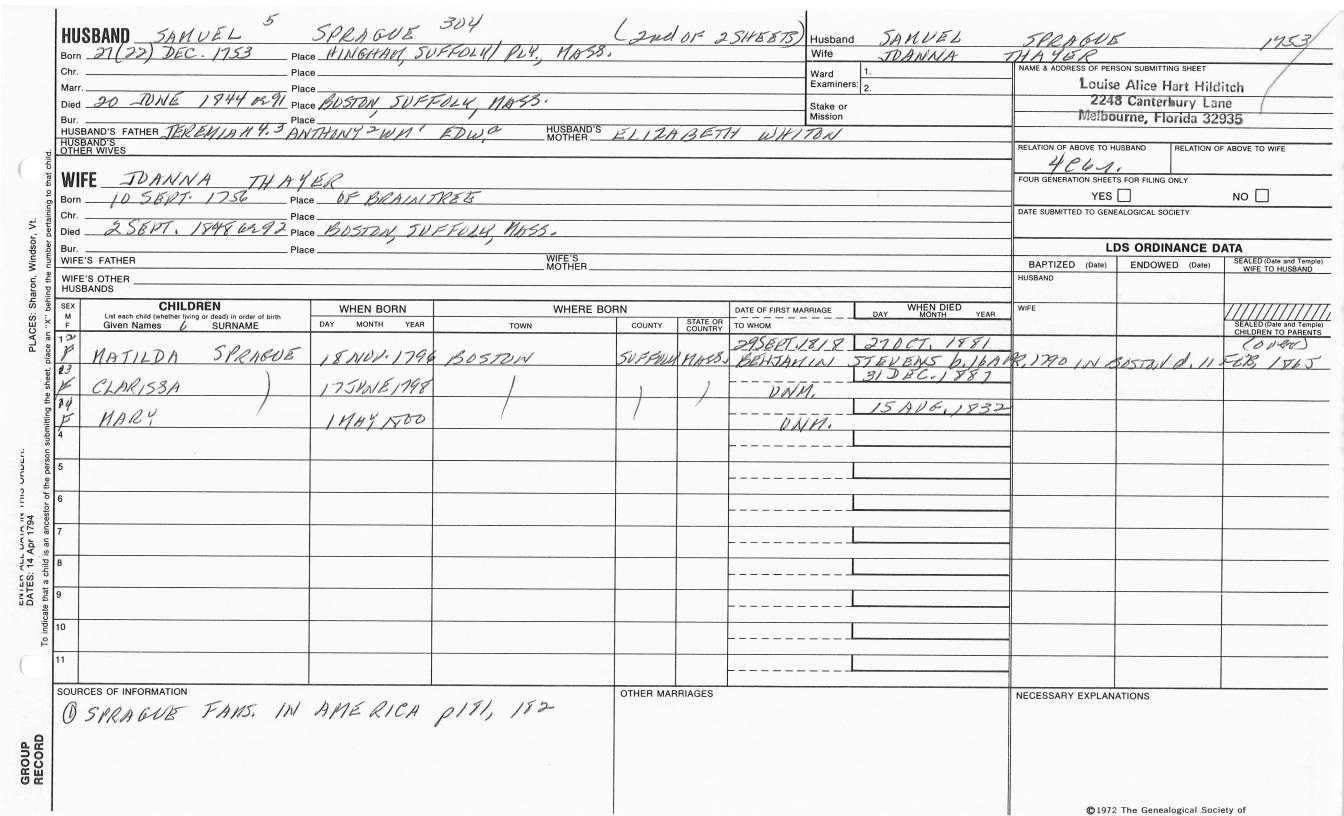 HUSBAND SAMUEL 5 SPRAGUE 304 (2nd OF 2 SHEETS)
Born 27(22) DEC. 1753 Place HINGHAM, SUFFOLK/ PLY., MASS.
Chr. Place
Marr. Place
Died 20 JUNE 1844 æ 91 Place BOSTON, SUFFOLK, MASS.
Bur. Place
HUSBAND'S FATHER JEREMIAH 4.3 ANTHONY 2 WM 1 EDW a HUSBAND'S MOTHER ELIZABETH WHITON
HUSBAND'S OTHER WIVES
WIFE JOANNA THAYER
Born 10 SEPT. 1756 Place OF BRAINTREE
Chr. Place
Died 2 SEPT. 1848 æ 92 Place BOSTON, SUFFOLK, MASS.
Bur. Place
WIFE'S FATHER WIFE'S MOTHER
WIFE'S OTHER HUSBANDS
Husband SAMUEL SPRAGUE 1753
Wife JOANNA THAYER
Ward Examiners: 1.
2.
Stake or Mission
NAME & ADDRESS OF PERSON SUBMITTING SHEET
Louise Alice Hart Hilditch
2248 Canterbury Lane
Melbourne, Florida 32935
RELATION OF ABOVE TO HUSBAND RELATION OF ABOVE TO WIFE
FOUR GENERATION SHEETS FOR FILING ONLY
YES NO
DATE SUBMITTED TO GENEALOGICAL SOCIETY
LDS ORDINANCE DATA
BAPTIZED (Date) ENDOWED (Date) SEALED (Date and Temple) WIFE TO HUSBAND
HUSBAND
WIFE
SEALED (Date and Temple) CHILDREN TO PARENTS
SEX M F
CHILDREN
List each child (whether living or dead) in order of birth
Given Names SURNAME
WHEN BORN
DAY MONTH YEAR
WHERE BORN
TOWN COUNTY STATE OR COUNTRY
DATE OF FIRST MARRIAGE
TO WHOM
WHEN DIED
DAY MONTH YEAR
12 29 SEPT. 1818 27 OCT. 1881 (OVER)
F MATILDA SPRAGUE 18 NOV. 1796 BOSTON SUFFOLK MASS. BENJAMIN STEVENS b. 16 APR, 1790 IN BOSTON d. 11 FEB, 1865
13 31 DEC. 1887
F CLARISSA 17 JUNE 1798 UNM.
14 15 AUG. 1832
F MARY 1 MAY 1800 UNM.
4
5
6
7
8
9
10
11
SOURCES OF INFORMATION
① SPRAGUE FAMS. IN AMERICA p181, 182
OTHER MARRIAGES
NECESSARY EXPLANATIONS
©1972 The Genealogical Society of
PLACES: Sharon, Windsor, Vt.
DATES: 14 Apr 1794
To indicate that a child is an ancestor of the person submitting the sheet, place an "X" behind the number pertaining to that child.
GROUP
RECORD